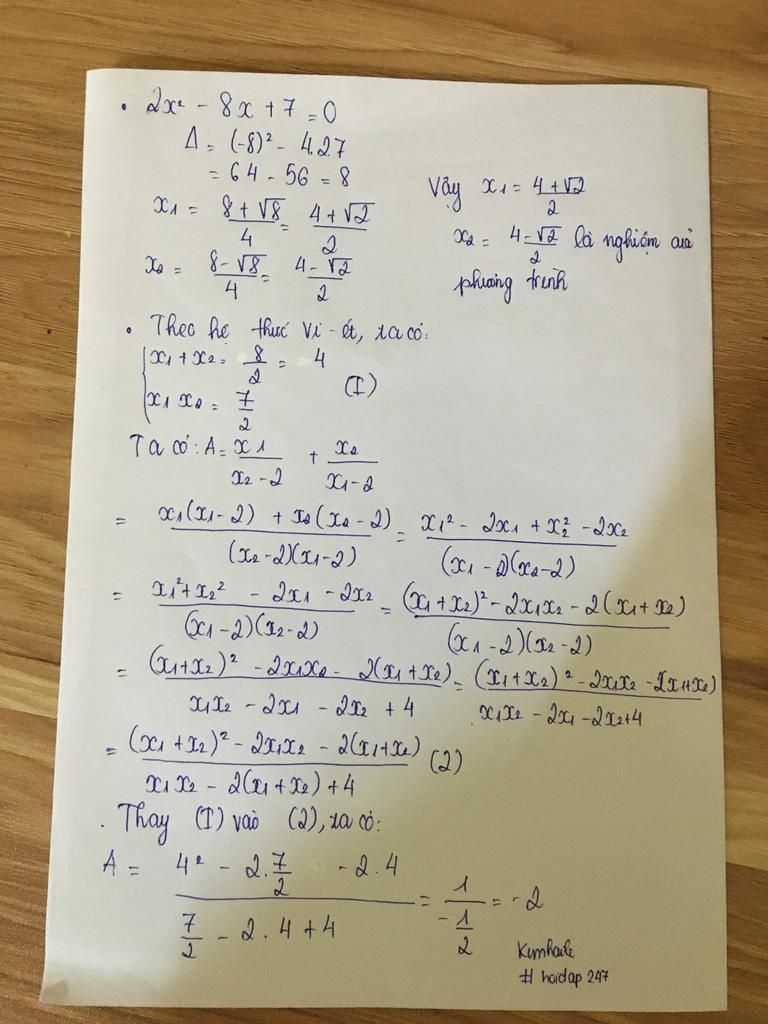 . 2x² - 8x + 7 = 0
Δ = (-8)² - 4.2.7
= 64 - 56 = 8
x₁ = (8 + √8)/4 = (4 + √2)/2
x₂ = (8 - √8)/4 = (4 - √2)/2
Vậy x₁ = (4 + √2)/2
x₂ = (4 - √2)/2 là nghiệm của
phương trình
. Theo hệ thức Vi-ét, ta có:
{x₁ + x₂ = 8/2 = 4
x₁ x₂ = 7/2 (I)
Ta có: A = x₁/(x₂ - 2) + x₂/(x₁ - 2)
= (x₁(x₁ - 2) + x₂(x₂ - 2))/((x₂ - 2)(x₁ - 2)) = (x₁² - 2x₁ + x₂² - 2x₂)/((x₁ - 2)(x₂ - 2))
= (x₁² + x₂² - 2x₁ - 2x₂)/((x₁ - 2)(x₂ - 2)) = ((x₁ + x₂)² - 2x₁x₂ - 2(x₁ + x₂))/((x₁ - 2)(x₂ - 2))
= ((x₁ + x₂)² - 2x₁x₂ - 2(x₁ + x₂))/(x₁x₂ - 2x₁ - 2x₂ + 4) = ((x₁ + x₂)² - 2x₁x₂ - 2(x₁ + x₂))/(x₁x₂ - 2x₁ - 2x₂ + 4)
= ((x₁ + x₂)² - 2x₁x₂ - 2(x₁ + x₂))/(x₁x₂ - 2(x₁ + x₂) + 4) (2)
. Thay (I) vào (2), ta có:
A = (4² - 2.7/2 - 2.4)/(7/2 - 2.4 + 4) = 1/(-1/2) = -2
# hoidap 247